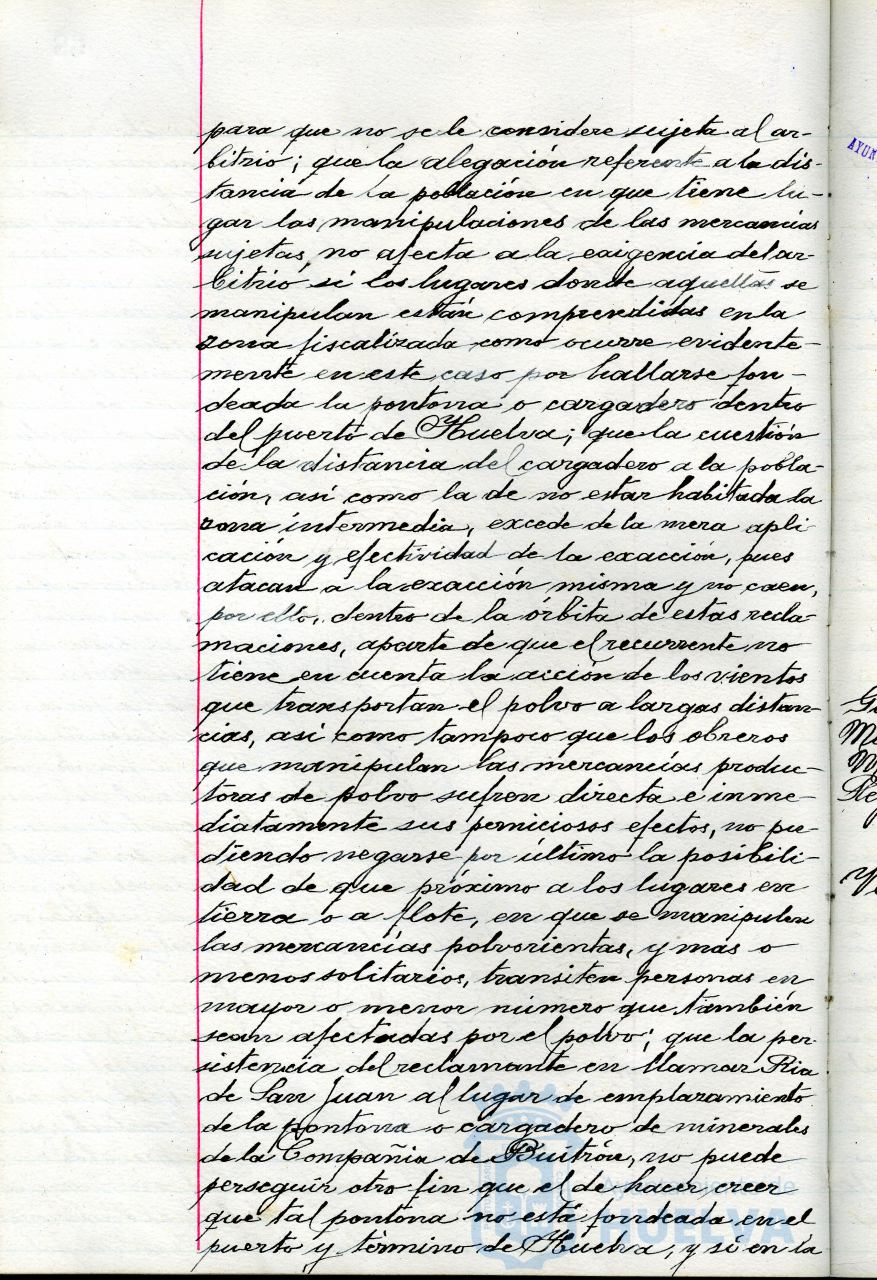 para que no se le considere sujeta al ar-
bitrio; que la alegación referente a la dis-
tancia de la población en que tiene lu-
gar las manipulaciones de las mercancias
sujetas, no afecta a la exigencia del ar-
bitrio, si los lugares donde aquellas se
manipulan están comprendidas en la
zona fiscalizada como ocurre evidente-
mente en este caso por hallarse fon-
deada la pontona o cargadero dentro
del puerto de Huelva; que la cuestión
de la distancia del cargadero a la pobla-
ción, así como la de no estar habitada la
zona intermedia, excede de la mera apli-
cación y efectividad de la exacción, pues
atacan a la exacción misma y no caen,
por ello, dentro de la órbita de estas recla-
maciones, aparte de que el recurrente no
tiene en cuenta la acción de los vientos
que transportan el polvo a largas distan-
cias, así como tampoco que los obreros
que manipulan las mercancías produc-
toras de polvo sufren directa e inme-
diatamente sus perniciosos efectos, no pu-
diendo negarse por último la posibili-
dad de que próximo a los lugares en
tierra o a flote, en que se manipulen
las mercancías polvorientas, y más o
menos solitarios, transiten personas en
mayor o menor número que también
sean afectadas por el polvo; que la per-
sistencia del reclamante en llamar Ria
de San Juan al lugar de emplazamiento
de la pontona o cargadero de minerales
de la Compañia de Buitrón, no puede
perseguir otro fin que el de hacer creer
que tal pontona no está fondeada en el
puerto y término de Huelva, y si en la
Ayuntamiento de
HUELVA